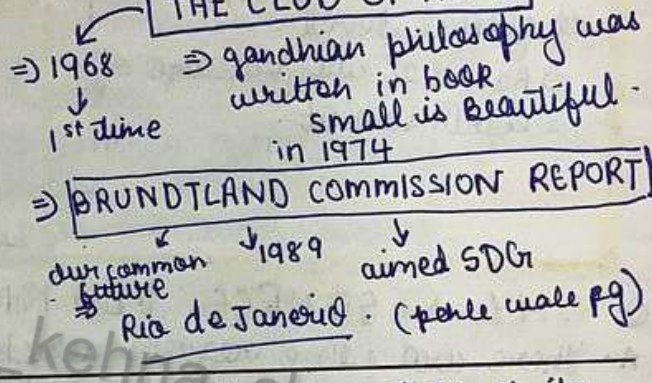 THE CLUB OF
⇒ 1968 ⇒ gandhian philosophy was
↓ written in book
1st time small is Beautiful.
in 1974
⇒ BRUNDTLAND COMMISSION REPORT
our common 1989 aimed SDG
future
⇒ Rio de Janerio. (pehle wale pg)
kehna